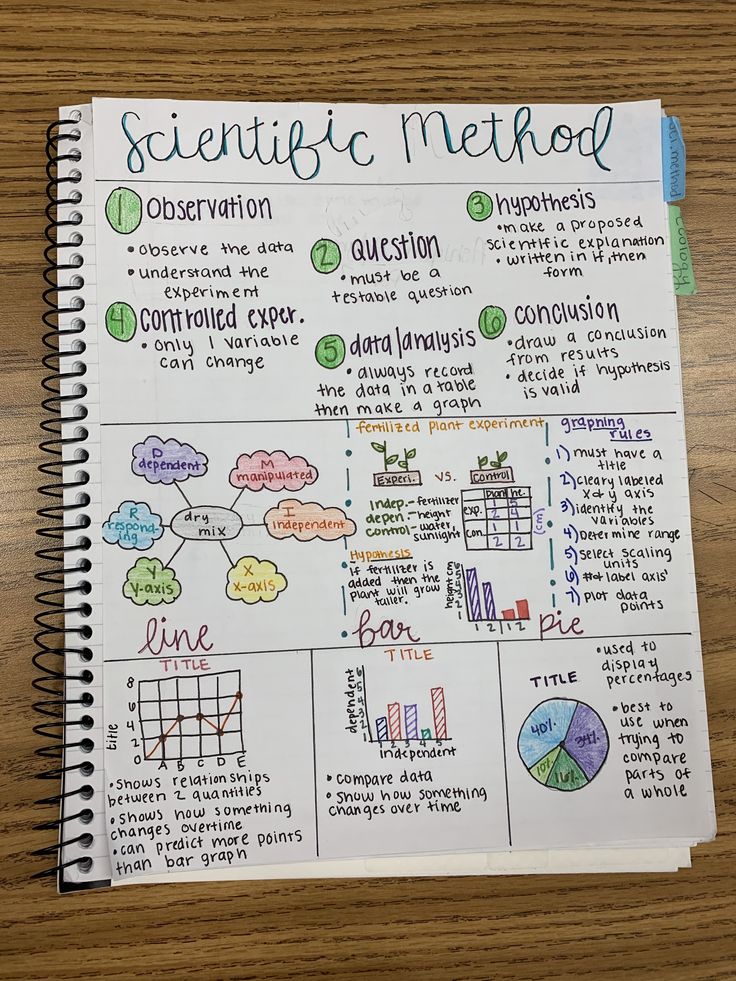 Scientific Method
sci. method
ecology
1 Observation
• observe the data
• understand the
experiment
2 Question
• must be a
testable question
3 hypothesis
• make a proposed
scientific explanation
• written in if, then
form
4 Controlled exper.
• only 1 variable
can change
5 data/analysis
• always record
the data in a table
then make a graph
6 conclusion
• draw a conclusion
from results
• decide if hypothesis
is valid
D
dependent
M
manipulated
R
respond-
ing
dry
mix
I
independent
Y
y-axis
X
x-axis
fertilized plant experiment
Experi. vs. Control
indep. - fertilizer
depen. - height
control - water,
sunlight
plant he.
exp.
2 4
con. 1 1
2 2
(cm)
Hypothesis
if fertilizer is
added then the
plant will grow
taller.
height cm
1 2 1 2
graphing
rules
1) must have a
title
2) cleary labeled
x & y axis
3) identify the
variables
4) Determine range
5) select scaling
units
6) # & label axis'
7) plot data
points
line
TITLE
title
8
6
4
2
0
A B C D E
• shows relationships
between 2 quantities
• shows how something
changes overtime
• can predict more points
than bar graph
bar
TITLE
dependent
1 2 3 4 5
independent
• compare data
• show how something
changes over time
pie
TITLE
40%
34%
10%
16%
• used to
display
percentages
• best to
use when
trying to
compare
parts of
a whole